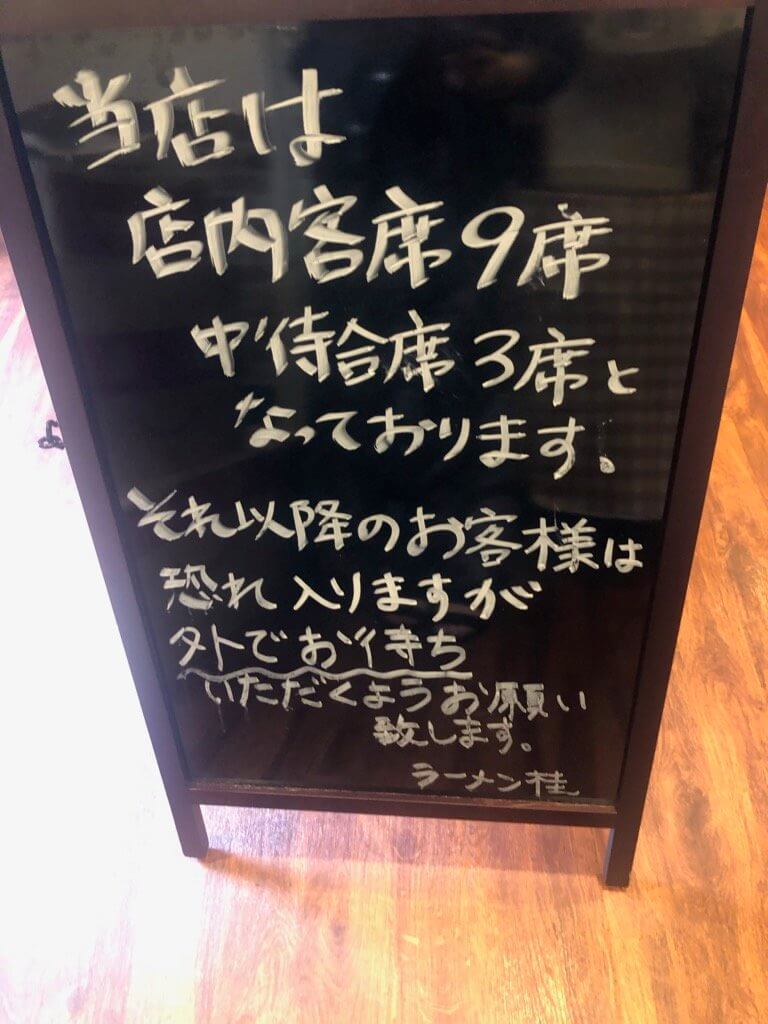 当店は
店内客席9席
中待合席3席と
なっております。
それ以降のお客様は
恐れ入りますが
外でお待ち
いただくようお願い
致します。
ラーメン桂